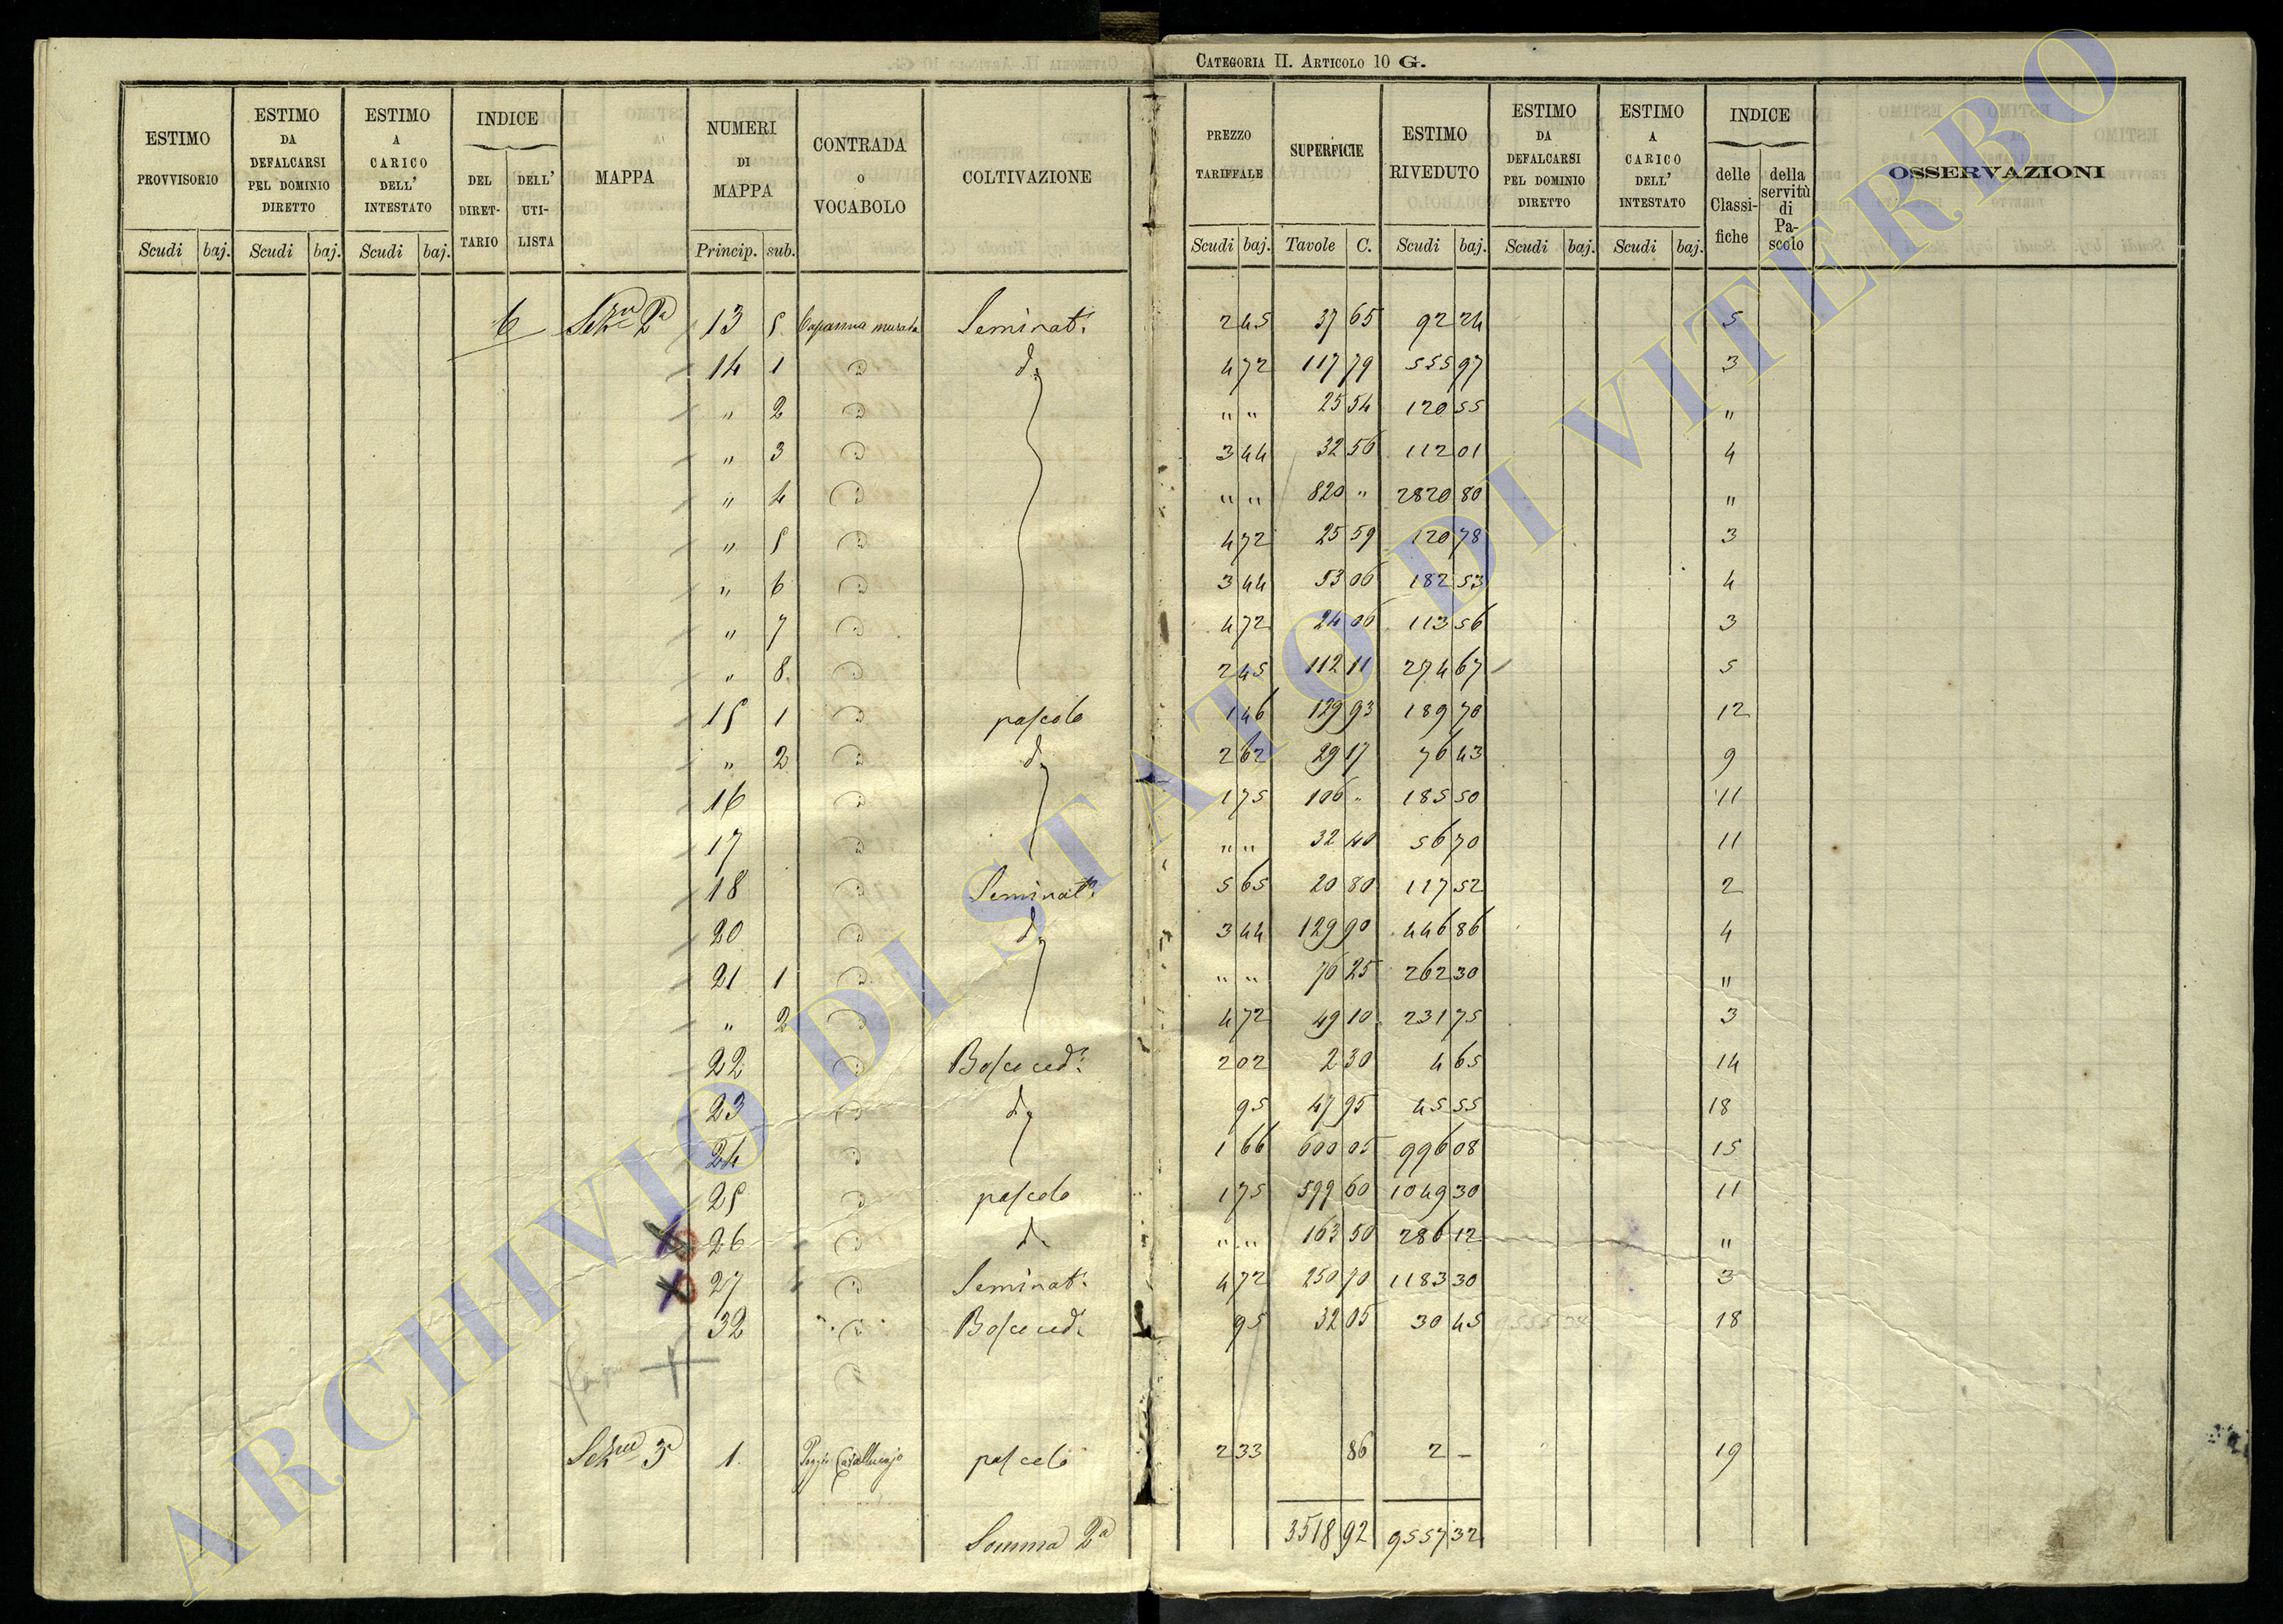 CATEGORIA II. ARTICOLO 10 G.
ESTIMO PROVVISORIO | ESTIMO DA DEFALCARSI PEL DOMINIO DIRETTO | ESTIMO A CARICO DELL' INTESTATO | INDICE DEL DIRET-TARIO | DELL' UTI-LISTA | MAPPA | NUMERI DI MAPPA | CONTRADA O VOCABOLO | COLTIVAZIONE | PREZZO TARIFFALE | SUPERFICIE | ESTIMO RIVEDUTO | ESTIMO DA DEFALCARSI PEL DOMINIO DIRETTO | ESTIMO A CARICO DELL' INTESTATO | INDICE delle Classi-fiche | della servitù di Pa-scolo | OSSERVAZIONI
Scudi | baj. | Scudi | baj. | Scudi | baj. | Princip. | sub. | Scudi | baj. | Tavole | C. | Scudi | baj. | Scudi | baj. | Scudi | baj.
6 | Sezne 2a | 13 | 5 | Capanna murata | Seminat. | 2 45 | 37 65 | 92 24 | 5
14 | 1 | d | d. | 4 72 | 117 79 | 555 97 | 3
" | 2 | d | " " | 25 54 | 120 55 | "
" | 3 | d | 3 44 | 32 56 | 112 01 | 4
" | 4 | d | " " | 820 " | 2820 80 | "
" | 5 | d | 4 72 | 25 59 | 120 78 | 3
" | 6 | d | 3 44 | 53 06 | 182 53 | 4
" | 7 | d | 4 72 | 24 06 | 113 56 | 3
" | 8. | d | 2 45 | 112 11 | 274 67 | 5
15 | 1 | d | pascolo | 1 46 | 129 93 | 189 70 | 12
" | 2 | d | d. | 2 62 | 29 17 | 76 43 | 9
16 | d | 1 75 | 106 " | 185 50 | 11
17 | d | " " | 32 40 | 56 70 | 11
18 | d | Seminat. | 5 65 | 20 80 | 117 52 | 2
20 | d | d. | 3 44 | 129 90 | 446 86 | 4
21 | 1 | d | " " | 76 25 | 262 30 | "
" | 2 | d | 4 72 | 49 10 | 231 75 | 3
22 | d | Bosco ced. | 2 02 | 2 30 | 4 65 | 14
23 | d | d. | 95 | 47 95 | 45 55 | 18
24 | d | 1 66 | 600 05 | 996 08 | 15
25 | d | pascolo | 1 75 | 599 60 | 1049 30 | 11
26 | d | d. | " " | 163 50 | 286 12 | "
27 | d | Seminat. | 4 72 | 250 70 | 1183 30 | 3
32 | d | Bosco ced. | 95 | 32 05 | 30 45 | 18
Sezne 3a | 1. | Poggio Cavalluccio | pascolo | 2 33 | 86 | 2 – | 19
Somma 2a | 3518 92 | 9557 32
ARCHIVIO DI STATO DI VITERBO